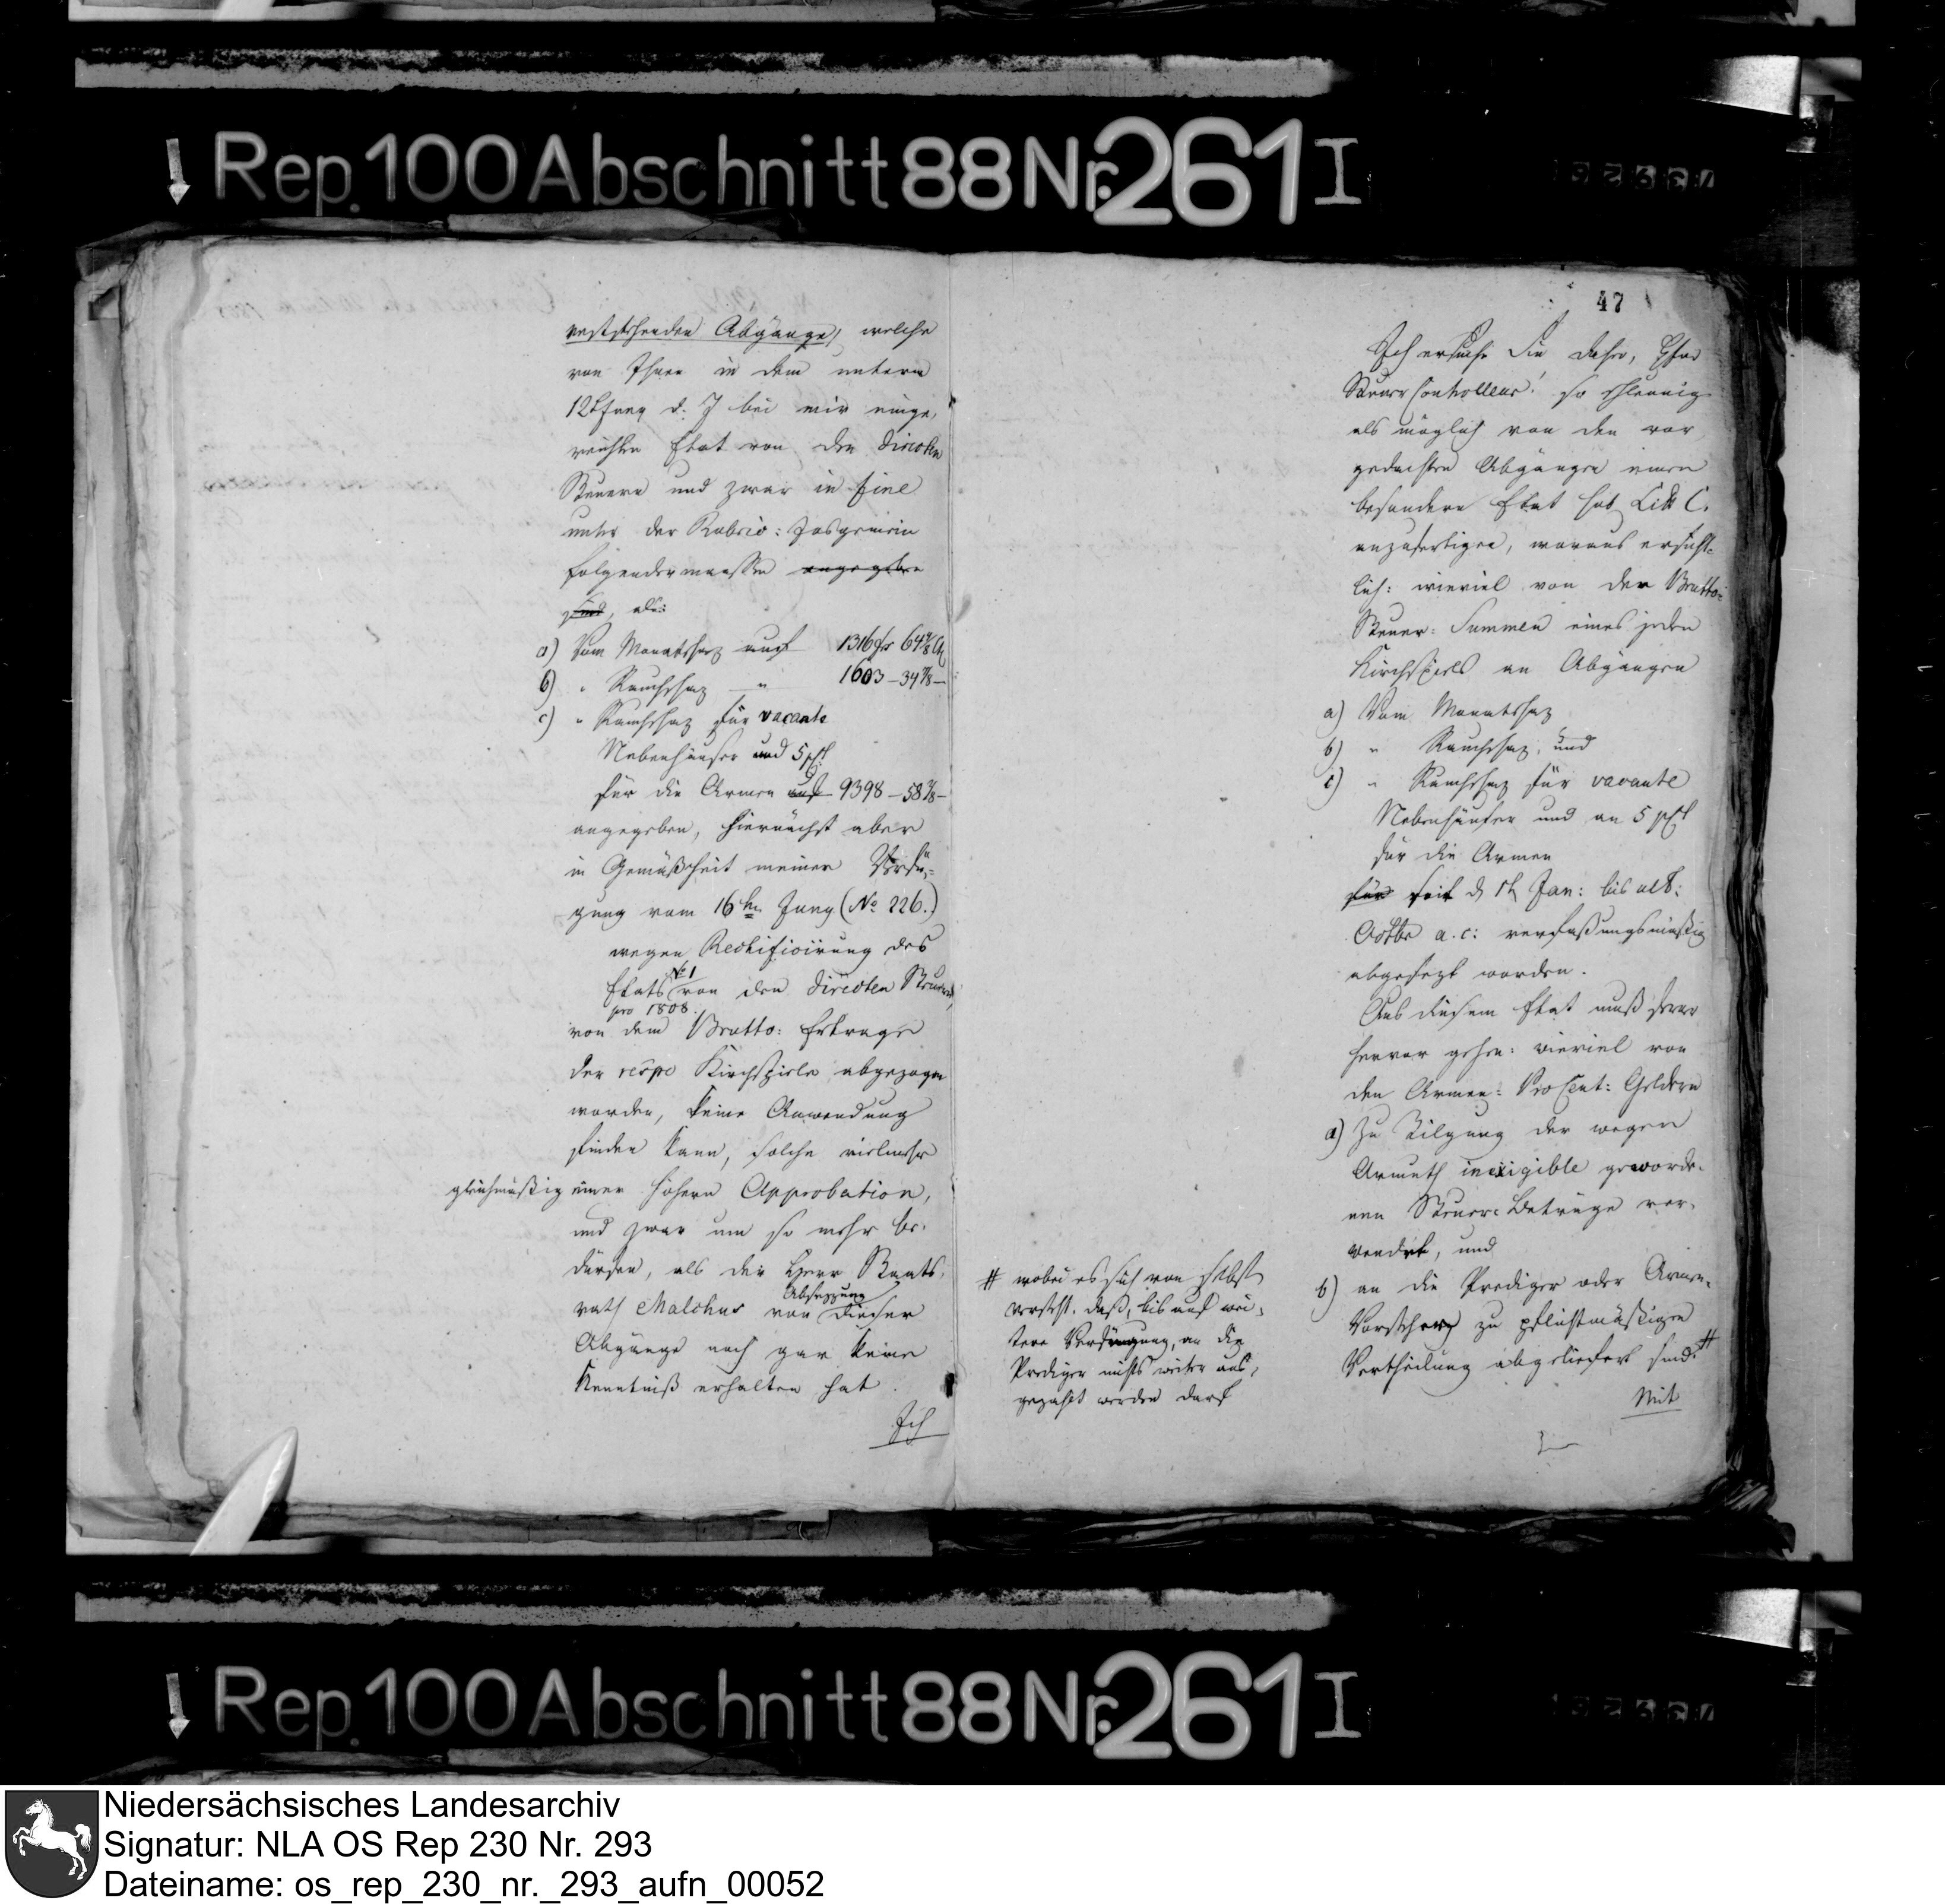 Rep. 100 Abschnitt 88 Nr. 261 I
veststehenden Abgänge, welche
von Ihnen in dem unterm
12t Juny d. J bei mir einge,
reichten Etat von den directen
Steuern und zwar in fine
unter der Rubric: Insgemein
folgendermaassen angegeben
sind, als:
a) Vom Monatschaz auf 1316 fr 64 7/8 Ct
b) " Rauchschaz " 1603 – 34 7/8 –
c) " Rauchschaz für vacante
Nebenhäuser und 5 pCt
für die Armen auf 9398 – 58 7/8 –
angegeben, hiernächst aber
in Gemäßheit meiner Verfü-
gung vom 16ten Juny (No 226.)
wegen Rectificirung des
Etats No 1 von den directen Steuern
pro 1808.
von dem Brutto: Ertrage
der respe Kirchspiele abgezogen
worden, keine Anwendung
finden kann, solche vielmehr
gleichmäßig einer höhern Approbation,
und zwar um so mehr be-
dürfen, als der Herr Staats,
rath Malchus von Absezzung dieser
Abgänge noch gar keine
Kenntniß erhalten hat.
Ich
47
Ich ersuche Sie daher, Herr
Steuer Controlleur! so schleunig
als möglich von den vor
gedachten Abgängen einen
besondern Etat sub Litt C.
anzufertigen, woraus ersicht-
lich: wieviel von den Brutto-
Steuer: Summen eines jeden
Kirchspiels an Abgängen
a) Vom Monatschaz
b) " Rauchschaz, und
c) " Rauchschaz für vacante
Nebenhäuser und an 5 pCt
für die Armen
für seit d 1t Jan: bis ult:
Octbr a. c: verfaßungsmäßig
abgesezt worden.
Aus diesem Etat muß ferner
hervor gehen: wieviel von
den Armen: ProCent: Geldern
a) Zu Tilgung der wegen
Armuth inexigible geworde-
nen Steuer: Beträge ver-
wendet, und
b) an die Prediger oder Armen-
Vorsteher zu pflichtmäßigen
Vertheilung abgeliefert sind. #
Mit
# wobei es sich von selbst
versteht, daß, bis auf wei-
tere Verfügung, an die
Prediger nichts weiter aus,
gezahlt werden darf
Rep. 100 Abschnitt 88 Nr. 261 I
Niedersächsisches Landesarchiv
Signatur: NLA OS Rep 230 Nr. 293
Dateiname: os_rep_230_nr._293_aufn_00052